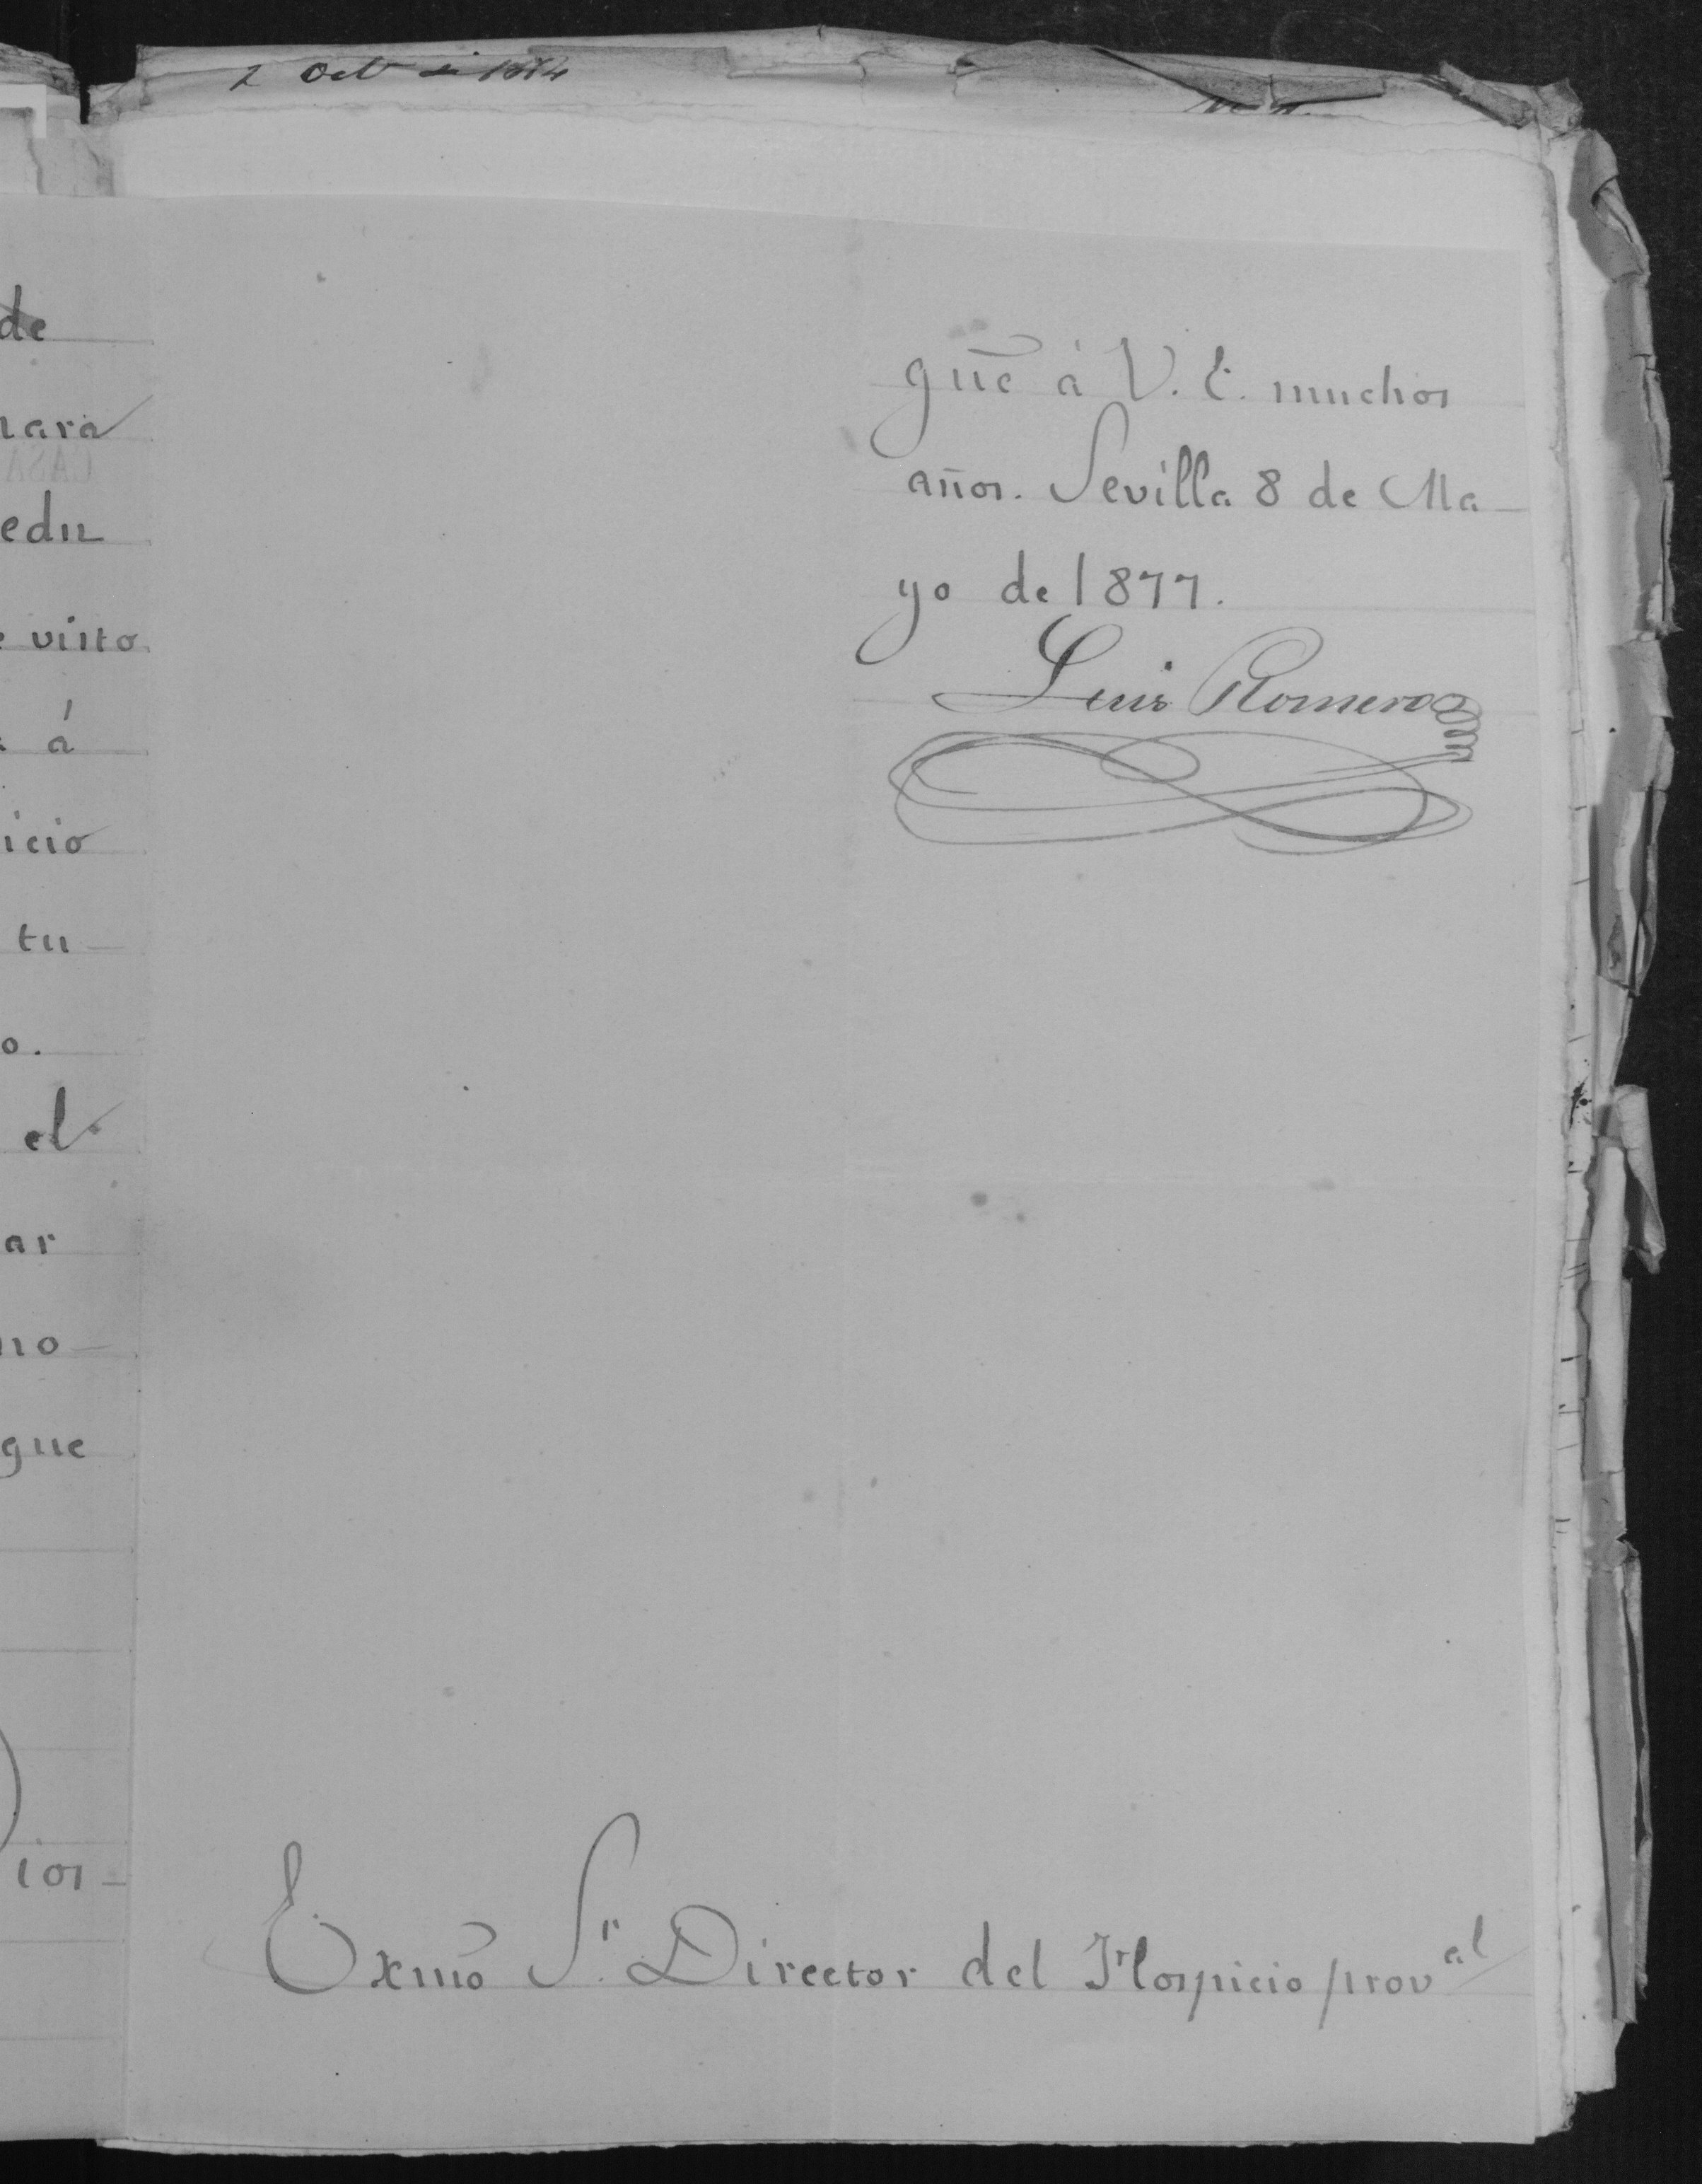 2 Oct
de
edu
visto
á
icio
tu
o.
el
ar
no
gue
ios
güe á V. E. muchos
años. Sevilla 8 de Ma
yo de 1877.
Luis Romero
Exmo Sr. Director del Hospicio proval